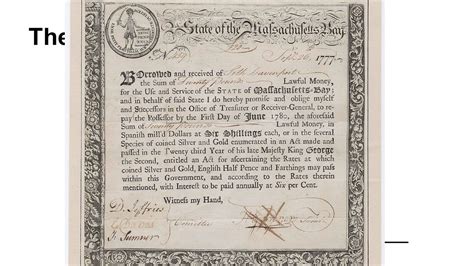 The
State of the Massachusetts Bay
1777
Borrowed and received of Seth Davenport
the Sum of Twenty Pounds Lawful Money,
for the Use and Service of the STATE of Massachusetts-Bay;
and in behalf of said State I do hereby promise and oblige myself
and Successors in the Office of Treasurer or Receiver-General, to re-
pay the Possessor by the First Day of June 1780, the aforesaid
Sum of Twenty Pounds Lawful Money,
in Spanish mill'd Dollars at Six Shillings each, or in the several
Species of coined Silver and Gold enumerated in an Act made and
passed in the Twenty third Year of his late Majesty King George
the Second, entitled an Act for ascertaining the Rates at which
coined Silver and Gold, English Half Pence and Farthings may pass
within this Government, and according to the Rates therein
mentioned, with Interest to be paid annually at Six per Cent.
Witness my Hand,
D. Jeffries
Committee
Sumner